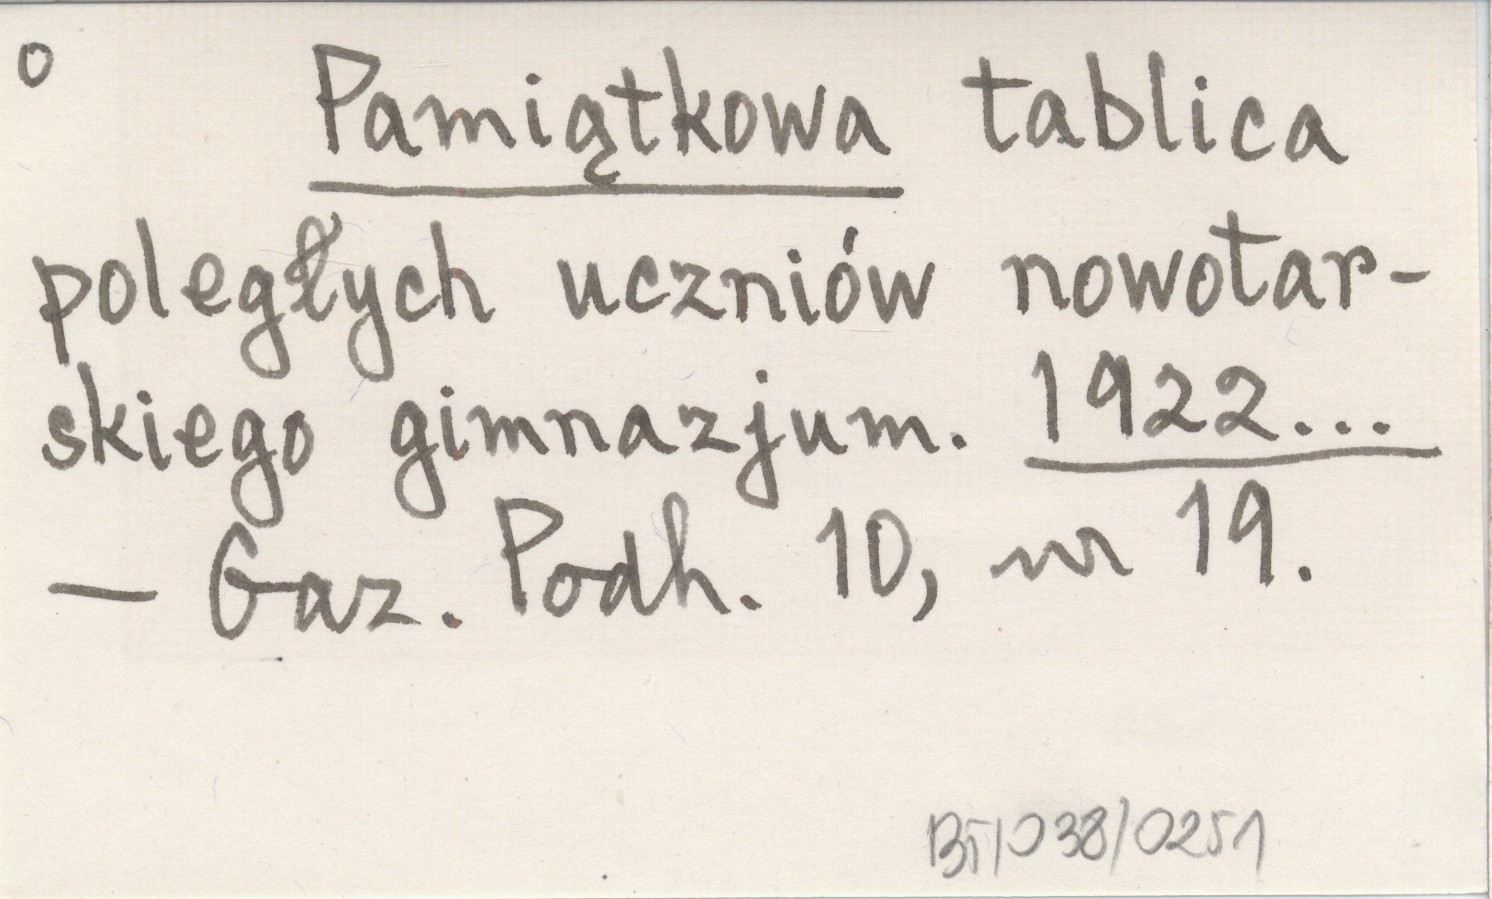 o Pamiątkowa tablica
poległych uczniów nowotar-
skiego gimnazjum. 1922...
— Gaz. Podh. 10, nr 19.
BT/038/0251